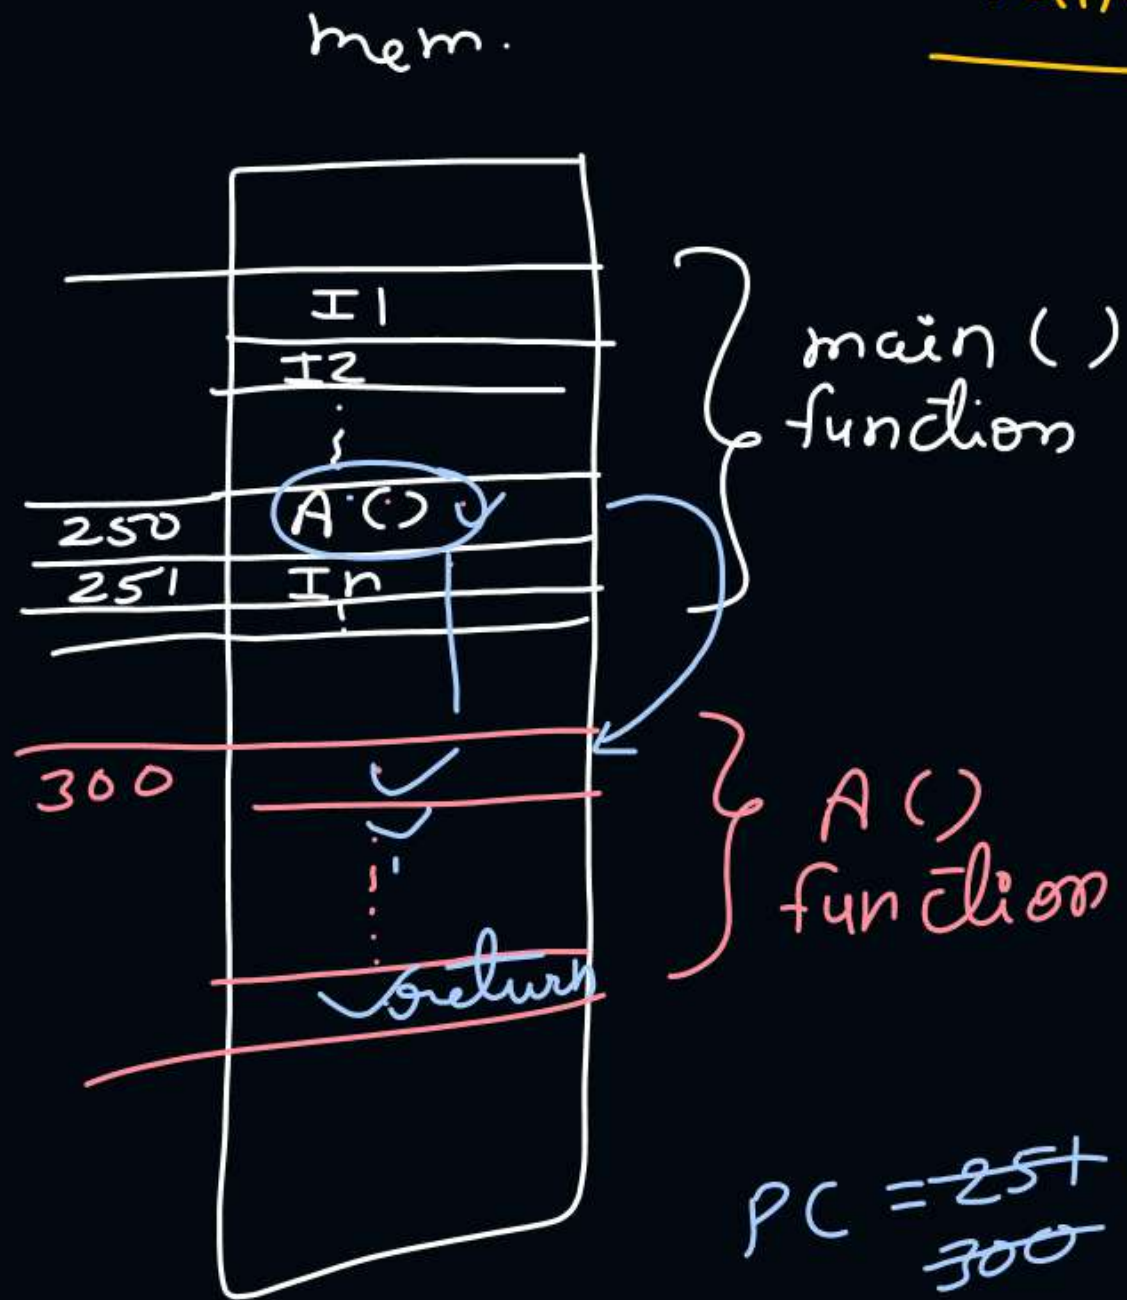 mem.
I1
I2
250 A()
251 In
main()
function
300
A()
function
return
PC = 251
300